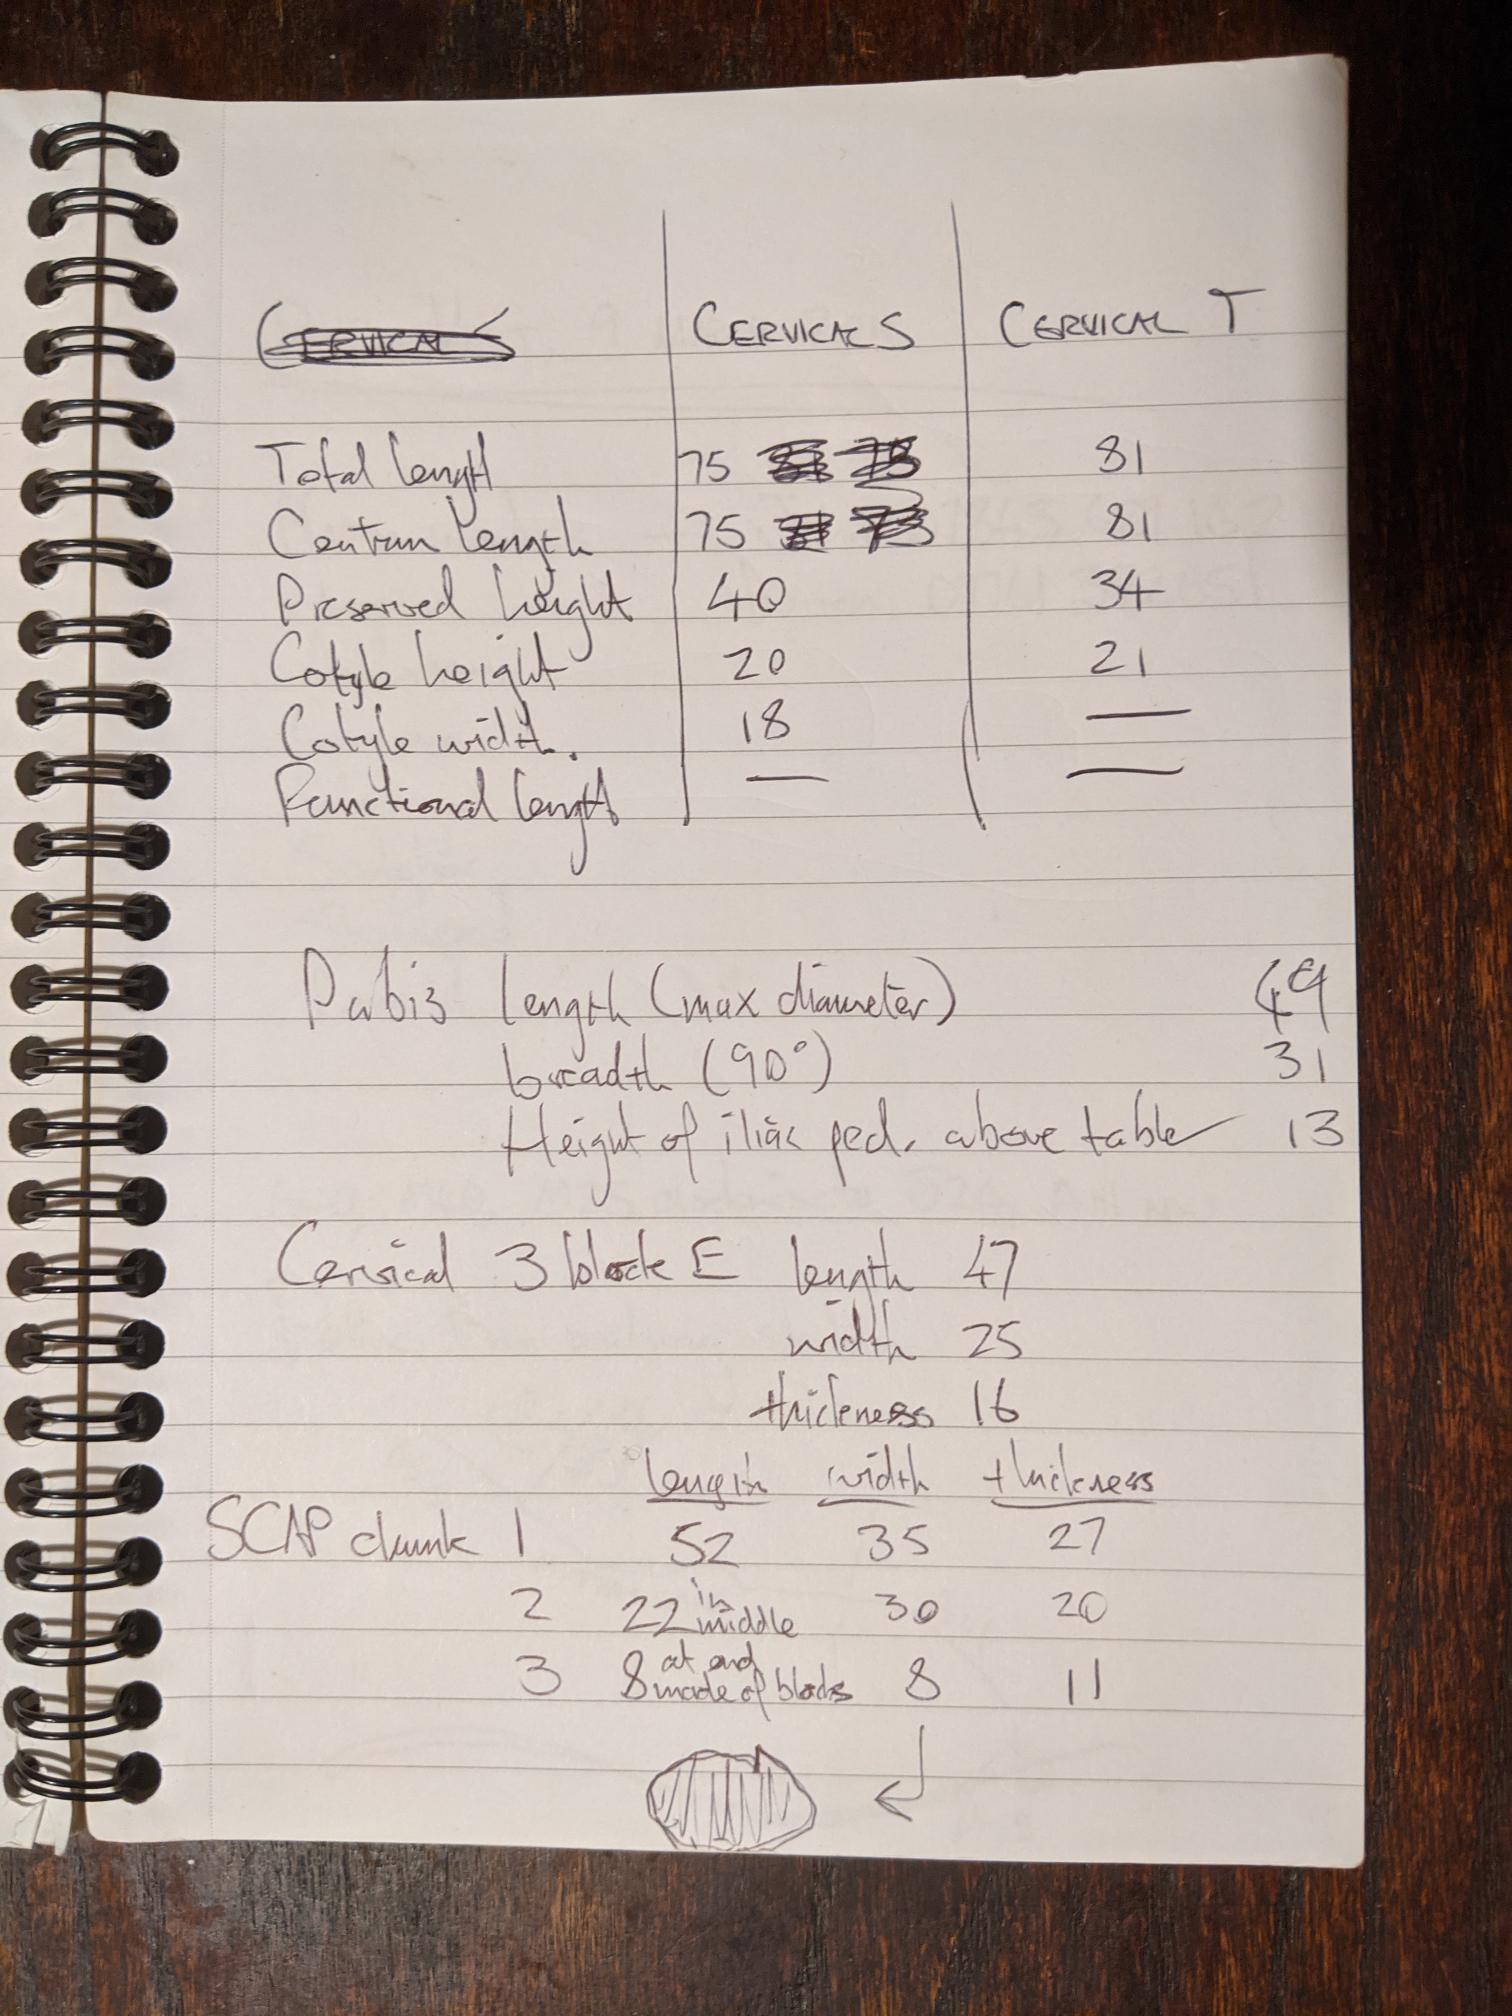 CERVICAL S CERVICAL T
Total length 75 81
Centrum length 75 81
Preserved height 40 34
Cotyle height 20 21
Cotyle width. 18 —
Functional length — —
Pubis length (max diameter) 49
breadth (90°) 31
Height of iliac ped. above table 13
Cervical 3 block E length 47
width 25
thickness 16
length width thickness
SCAP chunk 1 52 35 27
2 22 in middle 30 20
3 8 at end made of blocks 8 11